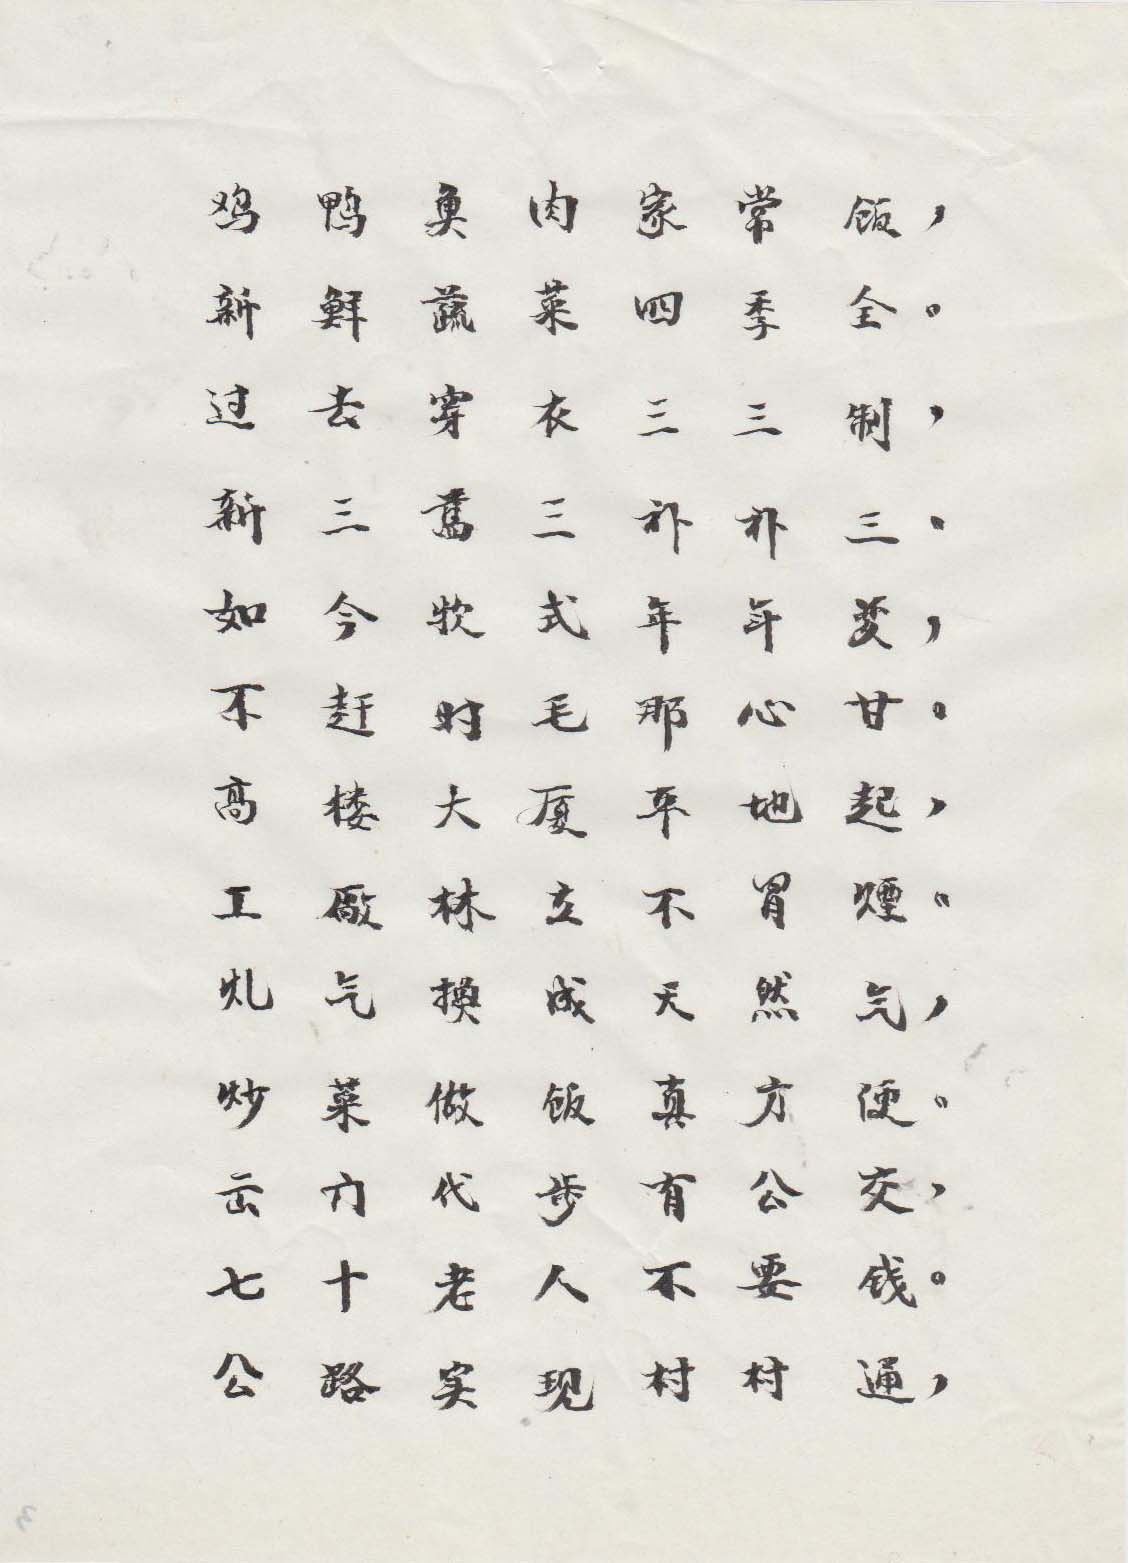 鸡鸭鱼肉家常饭，
新鲜蔬菜四季全。
过去穿衣三三制，
新三舊三补补三。
如今款式年年变，
不赶时毛那心甘。
高楼大厦平地起，
工廠林立不冒煙。
气换成天然气，
炒菜做饭真方便。
出门代步有公交，
七十老人不要钱。
公路实现村村通，